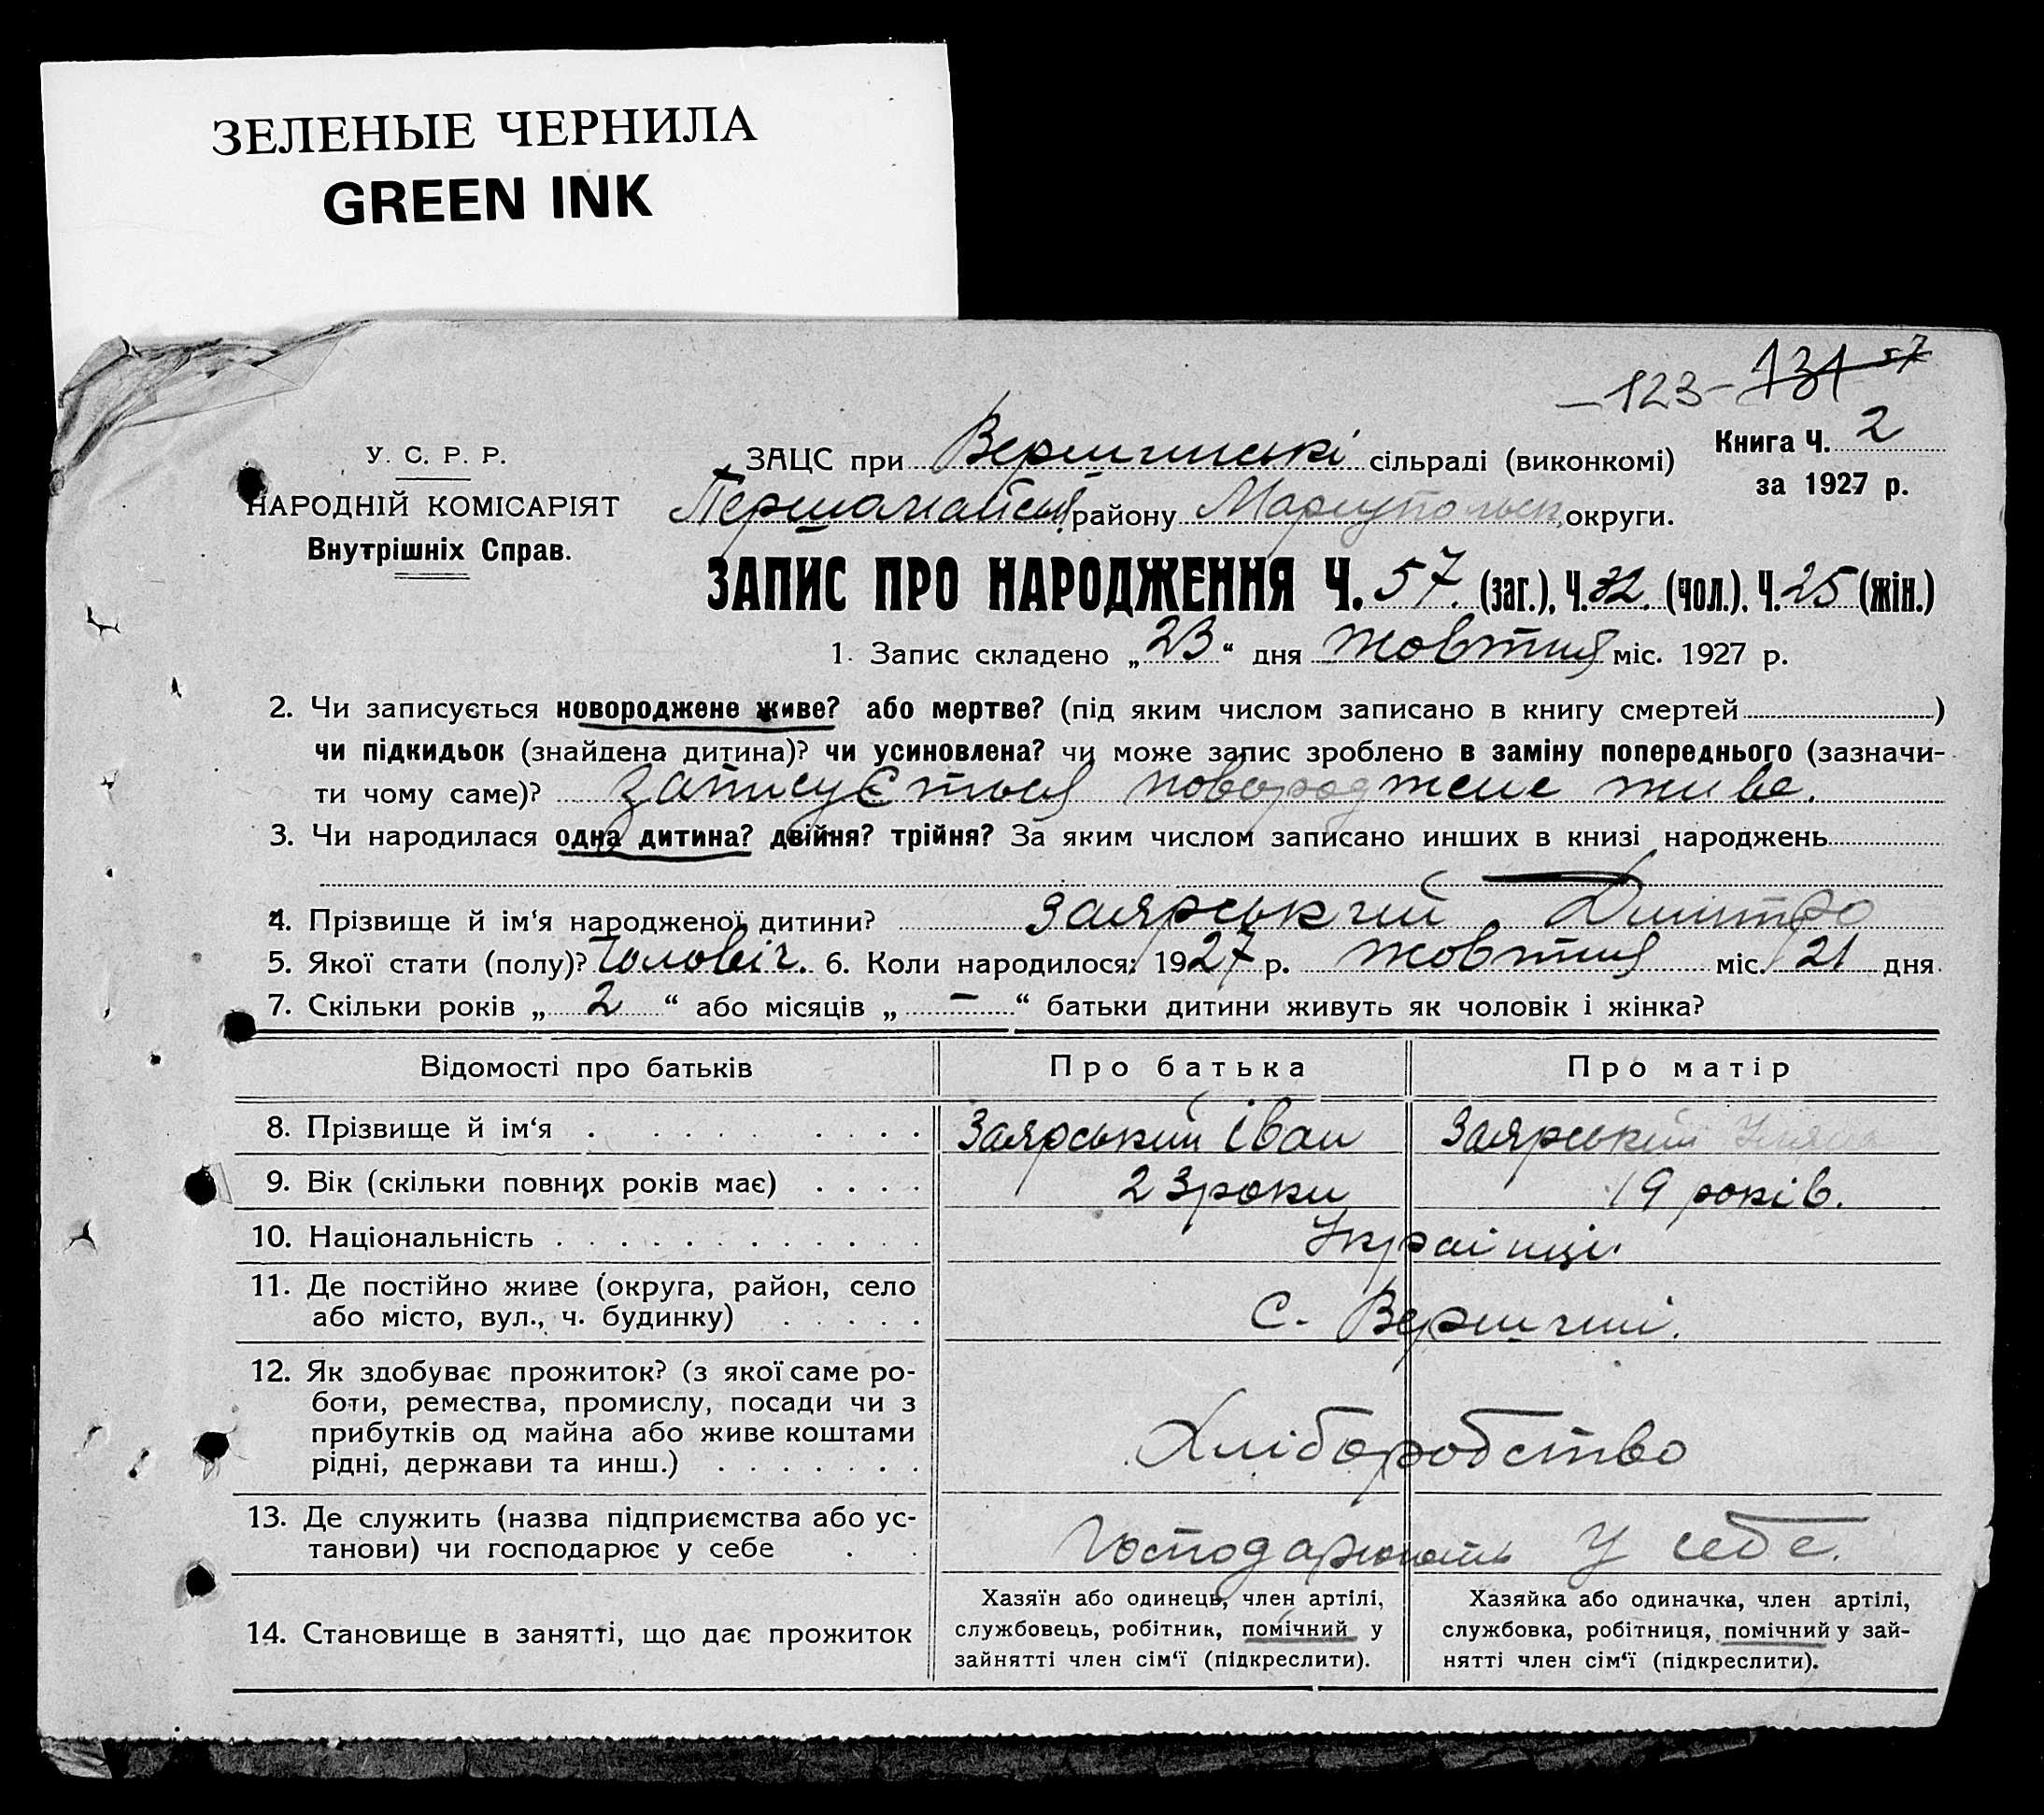 ЗЕЛЕНЫЕ ЧЕРНИЛА
GREEN INK
—123— 131 57
У. С. Р. Р.
НАРОДНІЙ КОМІСАРІЯТ
Внутрішніх Справ.
ЗАЦС при Вершинські сільраді (виконкомі)
Книга Ч. 2
за 1927 р.
Першамайськ району Маріупольськ. округи.
ЗАПИС ПРО НАРОДЖЕННЯ Ч. 57. (заг.), Ч. 32. (чол.). Ч. 25 (жін.)
1. Запис складено „23“ дня жовтня міс. 1927 р.
2. Чи записується новороджене живе? або мертве? (під яким числом записано в книгу смертей )
чи підкидьок (знайдена дитина)? чи усиновлена? чи може запис зроблено в заміну попереднього (зазначи-
ти чому саме)? записується новороджене живе.
3. Чи народилася одна дитина? двійня? трійня? За яким числом записано инших в книзі народжень
4. Прізвище й ім'я народженої дитини? Заярський Дмитро
5. Якої стати (полу)? Чоловіч. 6. Коли народилося: 1927 р. жовтня міс. 21 дня
7. Скільки років „ 2 “ або місяців „ — “ батьки дитини живуть як чоловік і жінка?
Відомості про батьків Про батька Про матір
8. Прізвище й ім'я Заярський Іван Заярський
9. Вік (скільки повних років має) 23 роки 19 років.
10. Національність Українці.
11. Де постійно живе (округа, район, село
або місто, вул., ч. будинку) С. Вершині.
12. Як здобуває прожиток? (з якої саме ро-
боти, ремества, промислу, посади чи з
прибутків од майна або живе коштами
рідні, держави та инш.) Хліборобство
13. Де служить (назва підприємства або ус-
танови) чи господарює у себе Господарюють у себе.
14. Становище в занятті, що дає прожиток
Хазяїн або одинець, член артілі,
службовець, робітник, помічний у
зайнятті член сім'ї (підкреслити).
Хазяйка або одиначка, член артілі,
службовка, робітниця, помічний у зай-
нятті член сім'ї (підкреслити).